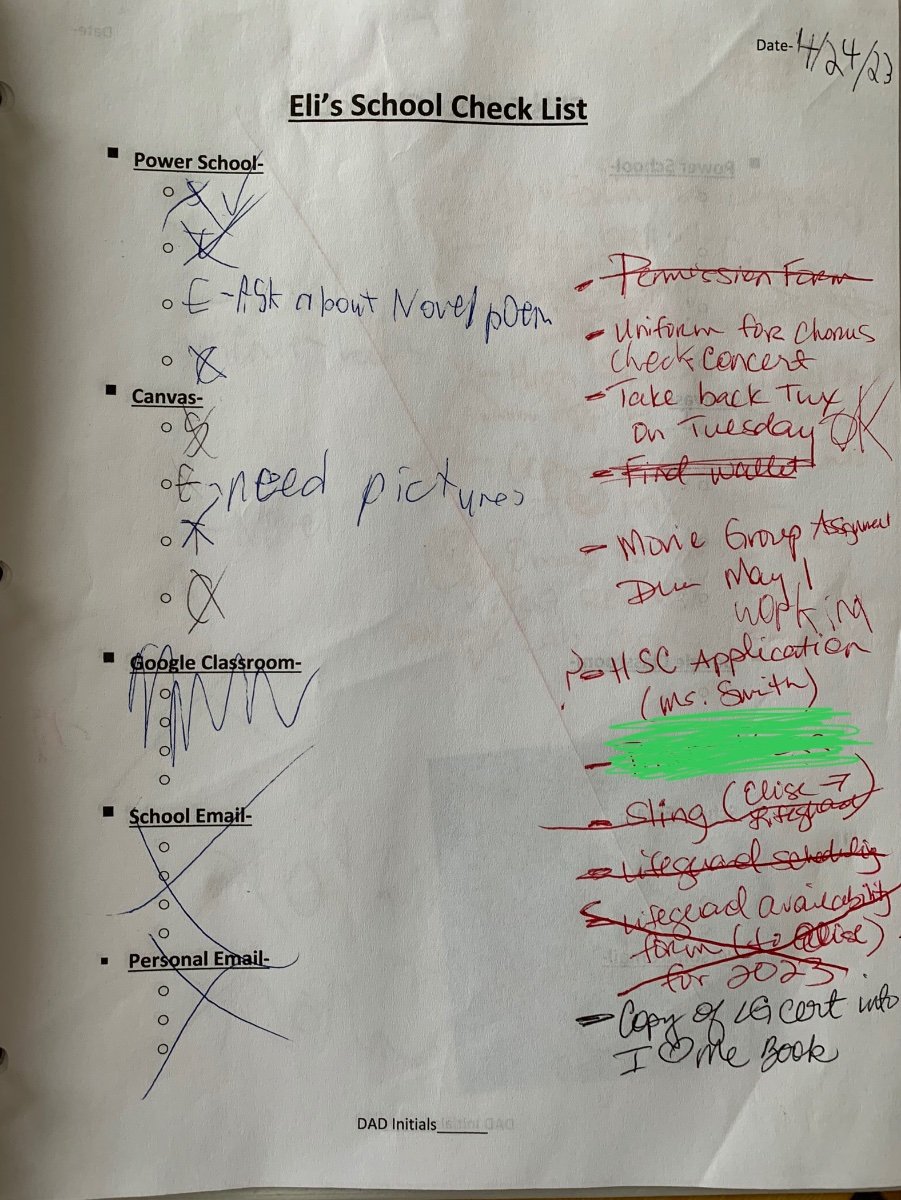 Date- 4/24/23
Eli's School Check List
Power School-
E-Ask about Novel poem
Canvas-
E need pictures
Google Classroom-
School Email-
Personal Email-
- Permission Form
- Uniform for Chorus
Check Concert
- Take back Tux
on Tuesday OK
- Find wallet
- Movie Group Assignment
Due May 1
working
?- HSC Application
(Ms. Smith)
- Sling (Elise →
Lifeguard)
- Lifeguard scheduling
Lifeguard availability
form (to Elise)
for 2023.
- Copy of LG cert into
I ♡ Me Book
DAD Initials______